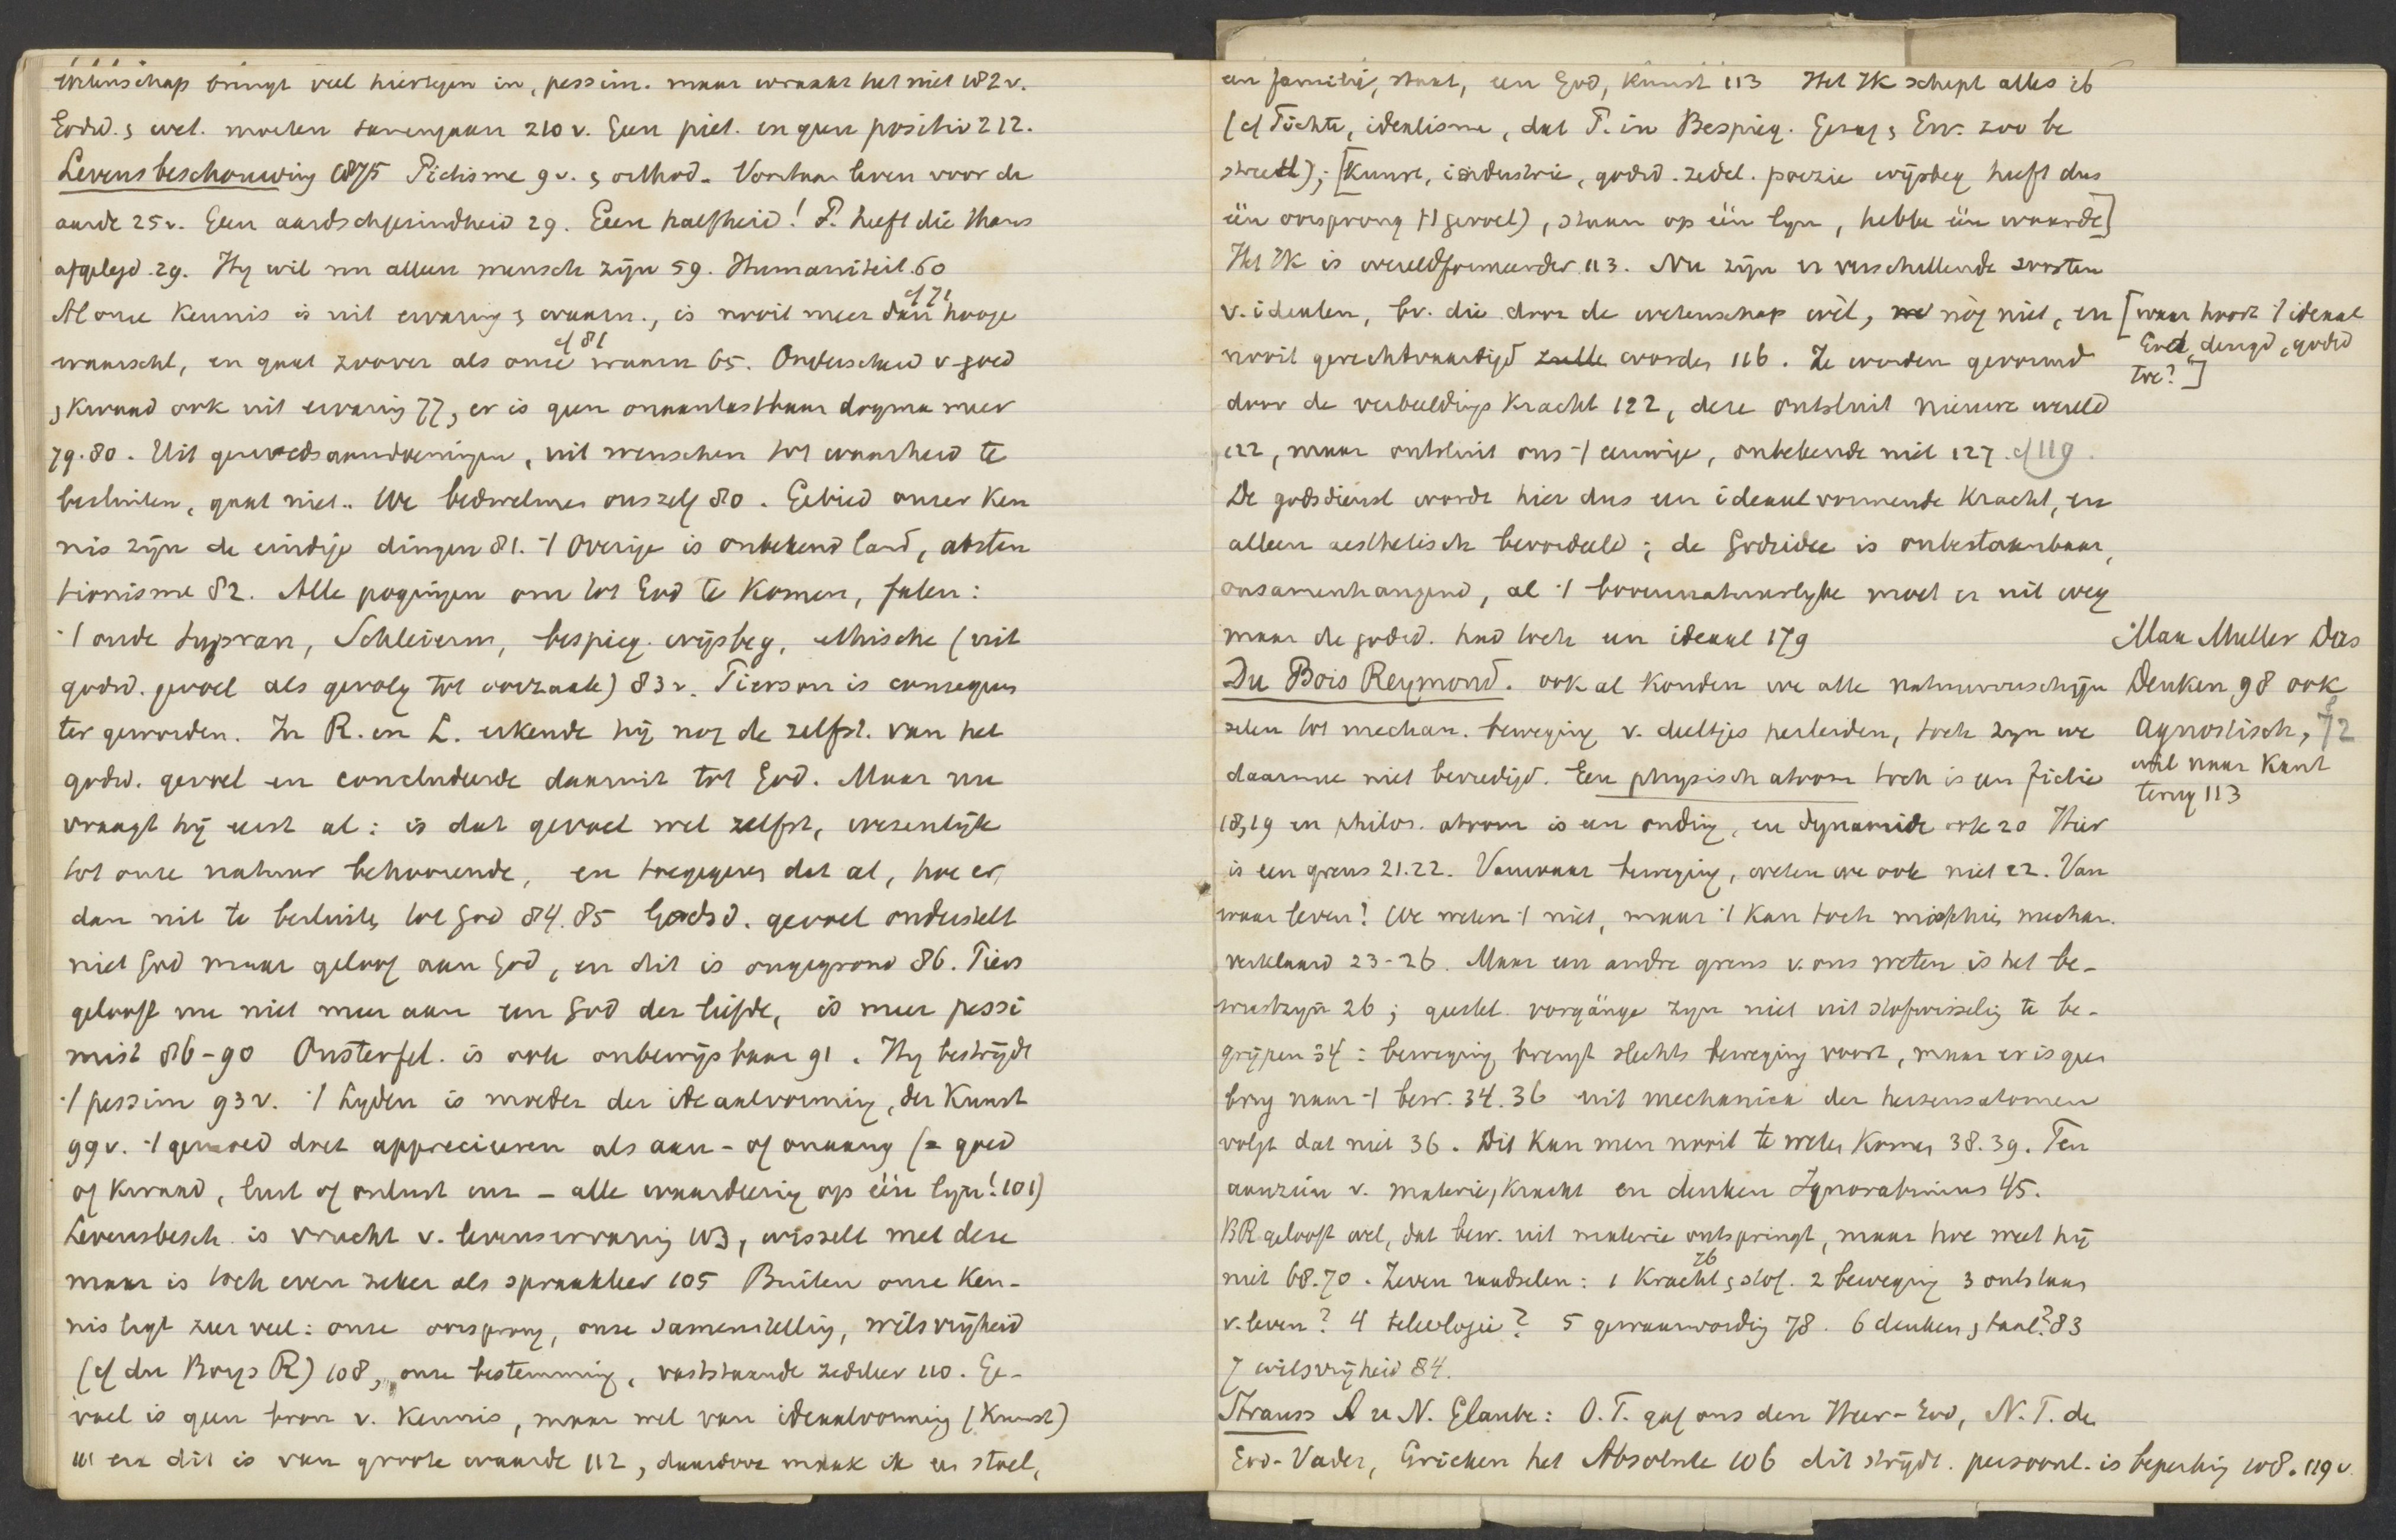 wetenschap brengt veel hiertegen in, pessim. maar wraakt het niet 182 v.
Godsd. & wet. moeten samengaan 210 v. Geen piet. en geen positiv 212.
Levensbeschouwing 1875 Piëtisme 9 v. & orthod. Voortaan leven voor de
aarde 25 v. Geen aardschgezindheid 29. Geen halfheid! P. heeft die thans
afgelegd 29. Hij wil nu alleen mensch zijn 59. Humaniteit 60
Al onze kennis is uit ervaring & waarn., is nooit meer dan hooge cf 71
waarschl, en gaat zoover als onze waarn 65. Onderscheid v. goed cf 81
& kwaad ook uit ervaring 77, er is geen onaantastbaar dogma meer
79. 80. Uit gemoedsaandoeningen, uit wenschen tot waarheid te
besluiten, gaat niet.. We bedwelmen onszelf 80. Gebied onzer ken
nis zijn de eindige dingen 81. 't Overige is onbekend land, absten
tionisme 82. Alle pogingen om tot God te komen, falen:
't oude supran, Schleierm, bespieg. wijsbeg, ethische (uit
godsd. gevoel als gevolg tot oorzaak) 83 v. Pierson is consequen
ter geworden. In R. en L. erkende hij nog de zelfst. van het
godsd. gevoel en concludeerde daaruit tot God. Maar nu
vraagt hij eerst al: is dat gevoel wel zelfst, wezenlijk
tot onze natuur behoorende, en toegegeven dat al, hoe er
dan uit te besluiten tot God 84. 85 Godsd. gevoel onderstelt
niet God maar geloof aan God, en dit is ongegrond 86. Piers
gelooft nu niet meer aan een God der liefde, is meer pessi
mist 86-90 Onsterfel. is ook onbewijsbaar 91. Hij bestrijdt
't pessim 93 v. 't Lijden is moeder der ideaalvorming, der kunst
99 v. 't gemoed doet apprecieeren als aan- of onaang (= goed
of kwaad, lust of onlust enz - alle waardeering op één lijn! 101)
Levensbesch. is vrucht v. levenservaring 103, wisselt met deze
maar is toch even zeker als spraakleer 105 Buiten onze ken-
nis ligt zeer veel: onze oorsprong, onze samenstelling, wilsvrijheid
(cf du Boys R) 108, onze bestemming, vaststaande zedeleer 110. Ge-
voel is geen bron v. kennis, maar wel van ideaalvorming (kunst)
111 en dit is van groote waarde 112, daardoor maak ik een stoel,
een familie, staat, een God, kunst 113 Het Ik schept alles ib
(cf Fichte, idealisme, dat P. in Bespieg. Gezag & Erv. zoo be
streed); [Kunst, industrie, godsd. zedel. poezie wijsbeg heeft dus
één oorsprong ('t gevoel), staan op één lijn, hebbe één waarde]
Het Ik is wereldformeerder 113. Nu zijn er verschillende soorten
v. idealen, bv. die door de wetenschap wèl, nóg niet, en
nooit gerechtvaardigd zulle worden 116. Ze worden gevormd
door de verbeeldingskracht 122, deze ontsluit nieuwe wereld
122, maar ontsluit ons 't eeuwige, onbekende niet 127. cf 119
[waar hoort 't ideaal
God, deugd, godsd
toe?]
De godsdienst wordt hier dus een ideaalvormende kracht, en
alleen aesthetisch beoordeeld; de Godsidee is onbestaanbaar,
onsamenhangend, al 't bovennatuurlijke moet er uit weg
maar de godsd. had toch een ideaal 179
Du Bois Reymond. ook al konden we alle natuurverschijn
selen tot mechan. beweging v. deeltjes herleiden, toch zijn we
daarmee niet bevredigd. Een physisch atoom toch is een fictie
18, 19 en philos. atoom is een onding, en dynamide ook 20 Hier
is een grens 21. 22. Vanwaar beweging, weten we ook niet 22. Van
waar leven? We weten 't niet, maar 't kan toch misschien mechan.
verklaard 23-26. Maar een andre grens v. ons weten is het be-
wustzijn 26; geestel. vorgänge zijn niet uit stofwisseling te be-
grijpen 34: beweging brengt slechts beweging voort, maar er is geen
brug naar 't bew. 34. 36 uit mechanica der hersensatomen
volgt dat niet 36. Dit kan men nooit te weten komen 38. 39. Ten
aanzien v. materie, kracht en denken Ignorabimus 45.
BR gelooft wel, dat bew. uit materie ontspringt, maar hoe weet hij
niet 68. 70. Zeven raadselen: 1 kracht & stof. 76 2 beweging 3 ontstaan
v. leven? 4 teleologie? 5 gewaarwording 78. 6 denken & taal? 83
7 wilsvrijheid 84.
Max Muller Das
Denken 98 ook
agnostisch, 72
wil naar Kant
terug 113
Strauss A u N. Glaube: O. T. gaf ons den Heer-God, N. T. de
God-Vader, Grieken het Absolute 106 dit strijdt. persoonl. is beperking 108. 119 v.